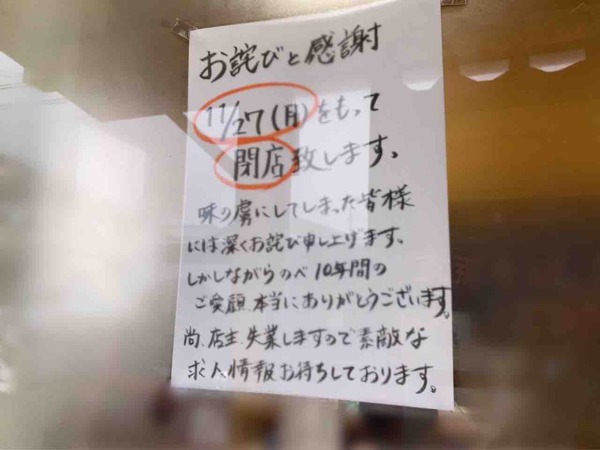 お詫びと感謝
11/27(月)をもって
閉店致します。
味の虜にしてしまった皆様
には深くお詫び申し上げます。
しかしながらのべ10年間の
ご愛顧、本当にありがとうございます。
尚、店主、失業しますので素敵な
求人情報お待ちしております。